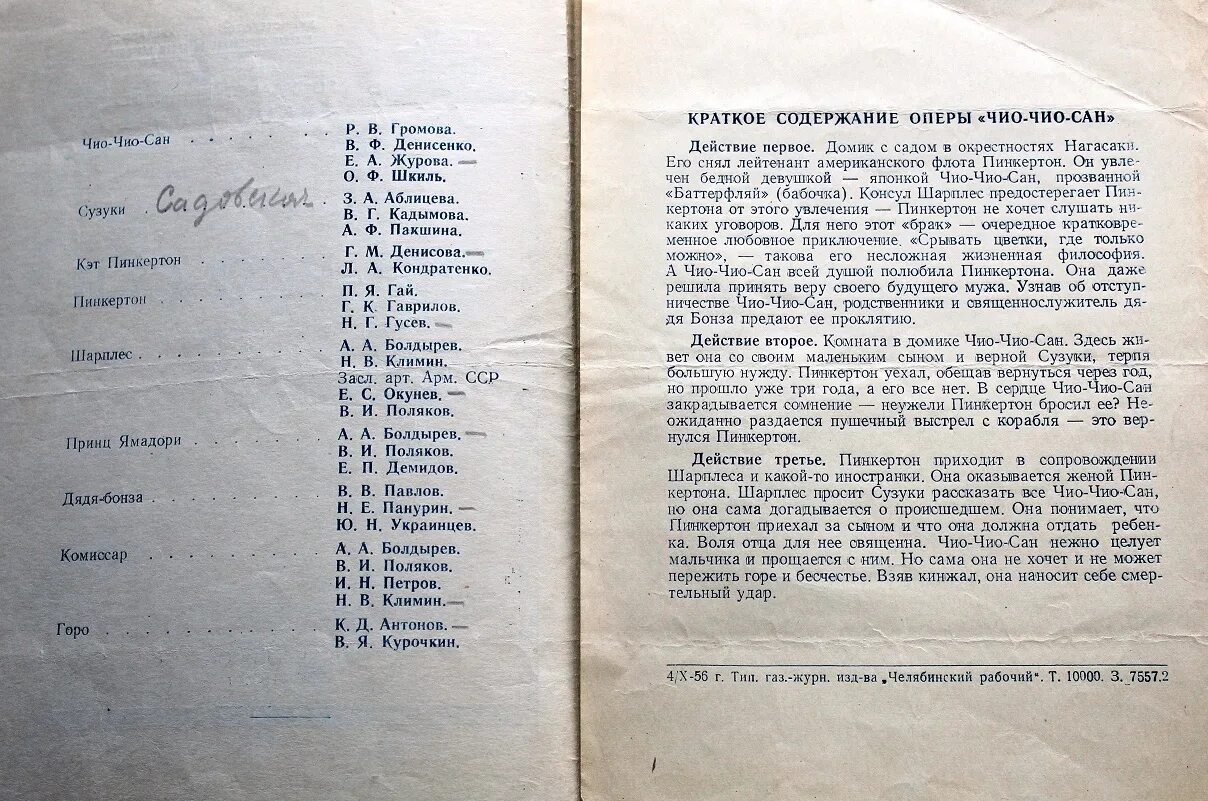 Чио-Чио-Сан . . . . . . . Р. В. Громова.
В. Ф. Денисенко.
Е. А. Журова. —
О. Ф. Шкиль.
Сузуки . Садовская . З. А. Аблицева.
В. Г. Кадымова.
А. Ф. Пакшина.
Кэт Пинкертон . . . . . . . Г. М. Денисова. —
Л. А. Кондратенко.
Пинкертон . . . . . . . . П. Я. Гай.
Г. К. Гаврилов.
Н. Г. Гусев. —
Шарплес . . . . . . . . . А. А. Болдырев.
Н. В. Климин.
Засл. арт. Арм. ССР
Е. С. Окунев. —
В. И. Поляков.
Принц Ямадори . . . . . . . А. А. Болдырев. —
В. И. Поляков.
Е. П. Демидов.
Дядя-бонза . . . . . . . . . В. В. Павлов.
Н. Е. Панурин. —
Ю. Н. Украинцев.
Комиссар . . . . . . . . А. А. Болдырев.
В. И. Поляков.
И. Н. Петров.
Н. В. Климин. —
Горо . . . . . . . . . . К. Д. Антонов. —
В. Я. Курочкин.
КРАТКОЕ СОДЕРЖАНИЕ ОПЕРЫ «ЧИО-ЧИО-САН»
Действие первое. Домик с садом в окрестностях Нагасаки.
Его снял лейтенант американского флота Пинкертон. Он увле-
чен бедной девушкой — японкой Чио-Чио-Сан, прозванной
«Баттерфляй» (бабочка). Консул Шарплес предостерегает Пин-
кертона от этого увлечения — Пинкертон не хочет слушать ни-
каких уговоров. Для него этот «брак» — очередное кратковре-
менное любовное приключение. «Срывать цветки, где только
можно», — такова его несложная жизненная философия.
А Чио-Чио-Сан всей душой полюбила Пинкертона. Она даже
решила принять веру своего будущего мужа. Узнав об отступ-
ничестве Чио-Чио-Сан, родственники и священнослужитель дя-
дя Бонза предают ее проклятию.
Действие второе. Комната в домике Чио-Чио-Сан. Здесь жи-
вет она со своим маленьким сыном и верной Сузуки, терпя
большую нужду. Пинкертон уехал, обещав вернуться через год,
но прошло уже три года, а его все нет. В сердце Чио-Чио-Сан
закрадывается сомнение — неужели Пинкертон бросил ее? Не-
ожиданно раздается пушечный выстрел с корабля — это вер-
нулся Пинкертон.
Действие третье. Пинкертон приходит в сопровождении
Шарплеса и какой-то иностранки. Она оказывается женой Пин-
кертона. Шарплес просит Сузуки рассказать все Чио-Чио-Сан,
но она сама догадывается о происшедшем. Она понимает, что
Пинкертон приехал за сыном и что она должна отдать ребен-
ка. Воля отца для нее священна. Чио-Чио-Сан нежно целует
мальчика и прощается с ним. Но сама она не хочет и не может
пережить горе и бесчестье. Взяв кинжал, она наносит себе смер-
тельный удар.
4/X-56 г. Тип. газ.-журн. изд-ва „Челябинский рабочий“. Т. 10000. З. 7557.2